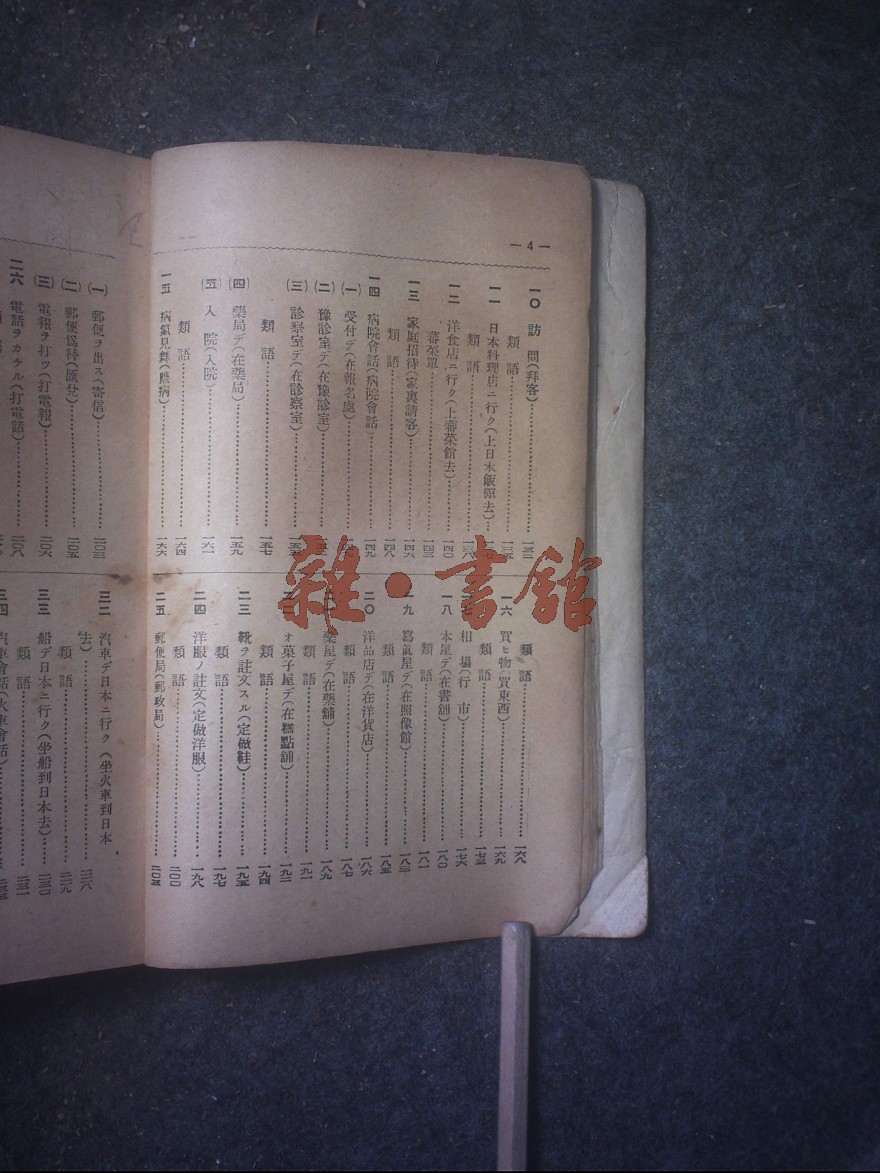 — 4 —
一〇 訪 問(拜客)……一三二
類 語……一三五
一一 日本料理店ニ行ク(上日本飯館去)……
類 語……一三八
一二 洋食店ニ行ク(上蕃菜館去)……一四〇
蕃菜單……一四三
一三 家庭招待(家裏請客)……一四六
類 語……一四八
一四 病院會話(病院會話)……一四九
(一) 受付デ(在報名處)……
(二) 豫診室デ(在豫診室)……
(三) 診察室デ(在診察室)……
類 語……一五七
(四) 藥局デ(在藥局)……一五九
(五) 入 院(入院)……一六一
類 語……一六四
一五 病氣見舞(瞧病)……一六六
類 語……一六八
一六 買ヒ物(買東西)……一六九
類 語……一七三
相 場(行 市)……一七六
一八 本屋デ(在書舖)……一八〇
類 語……一八一
一九 寫眞屋デ(在照像館)……一八三
類 語……一八五
二〇 洋品店デ(在洋貨店)……一八六
類 語……一八七
藥屋デ(在藥舖)……一八九
類 語……一九一
オ菓子屋デ(在糕點舖)……一九二
類 語……一九四
二三 靴ヲ註文スル(定做鞋)……一九五
類 語……一九七
二四 洋服ノ註文(定做洋服)……一九八
類 語……二〇〇
二五 郵便局(郵政局)……二〇三
(一) 郵便ヲ出ス(寄信)……二〇三
(二) 郵便爲替(匯兌)……二〇五
(三) 電報ヲ打ツ(打電報)……二〇六
二六 電話ヲカケル(打電話)……二〇八
三二 汽車デ日本ニ行ク(坐火車到日本
去)……二二八
類 語……二二九
三三 船デ日本ニ行ク(坐船到日本去)……二三〇
類 語……二三一
三四 汽車會話(火車會話)……
雜・書館